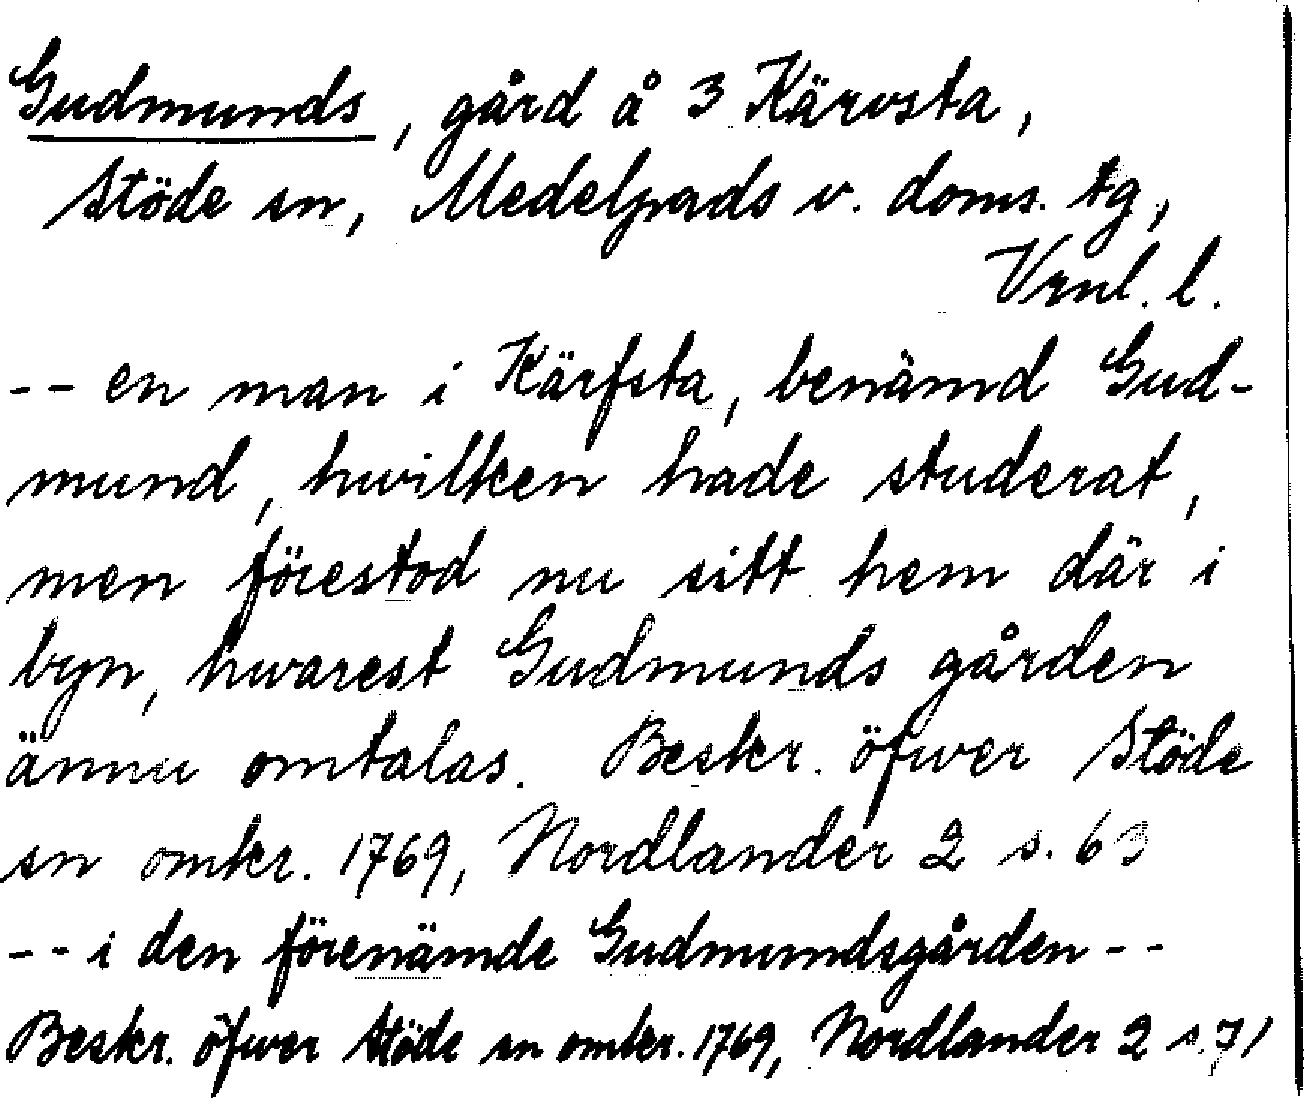 Gudmunds, gård å 3 Kärvsta,
Stöde sn, Medelpads v. doms. tg,
Vrnl. l.
-- en man i Kärfsta, benämd Gud-
mund, hwilken hade studerat,
men förestod nu sitt hem där i
byn, hwarest Gudmunds gården
ännu omtalas. Beskr. öfwer Stöde
sn omkr. 1769, Nordlander 2 s. 63
-- i den förenämde Gudmundsgården --
Beskr. öfwer Stöde sn omkr. 1769, Nordlander 2 s. 71